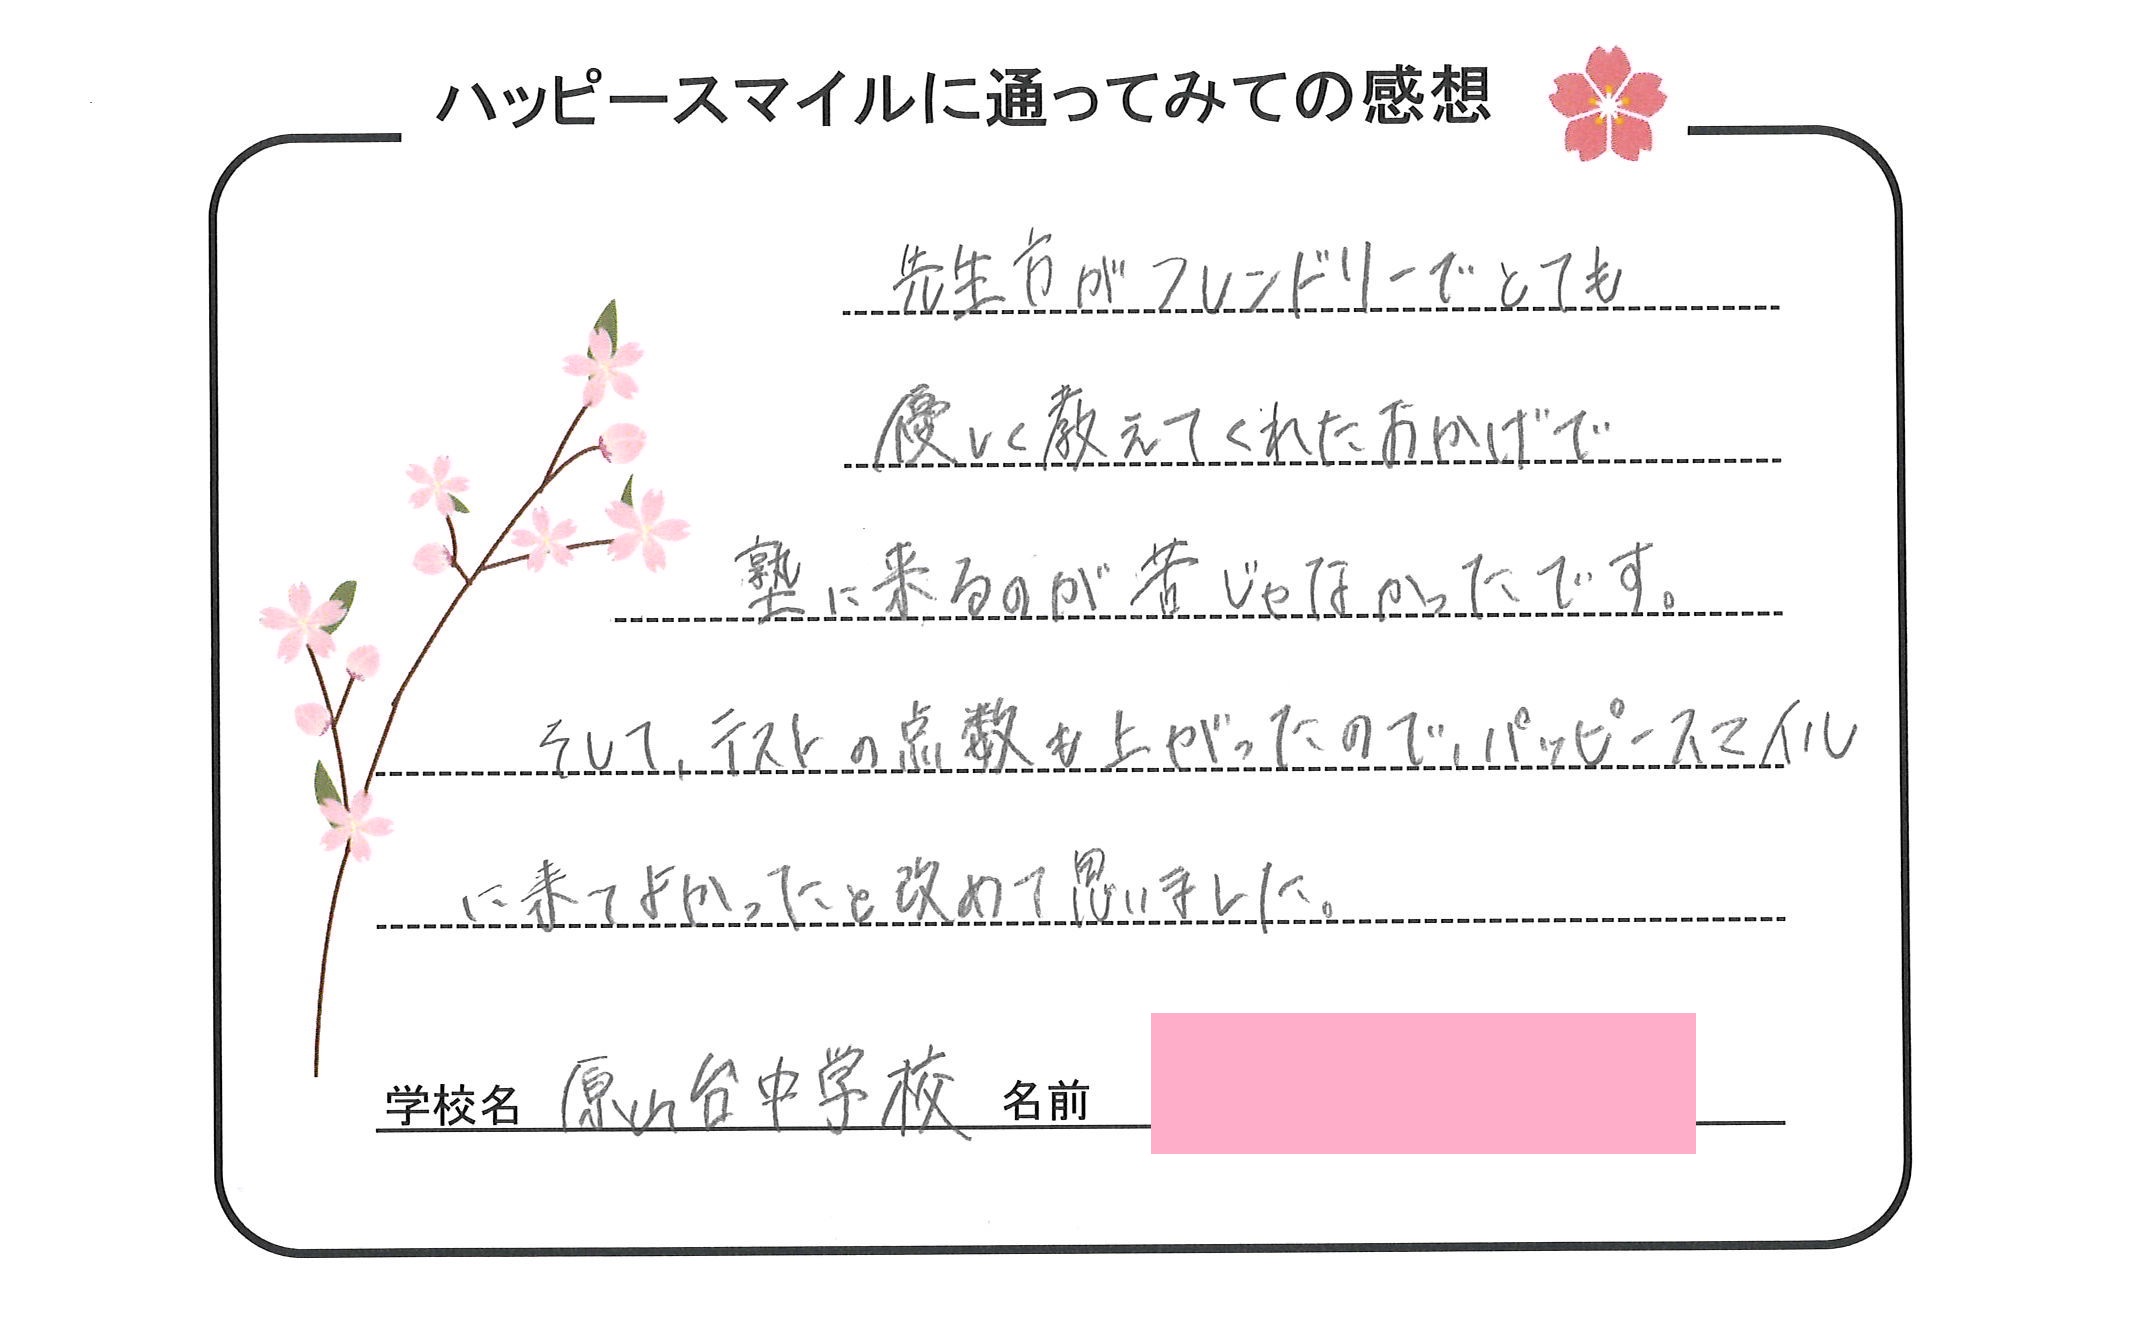 ハッピースマイルに通ってみての感想
先生方がフレンドリーでとても
優しく教えてくれたおかげで
塾に来るのが苦じゃなかったです。
そして、テストの点数も上がったので、パッピースマイル
に来てよかったと改めて思いました。
学校名 原山台中学校 名前